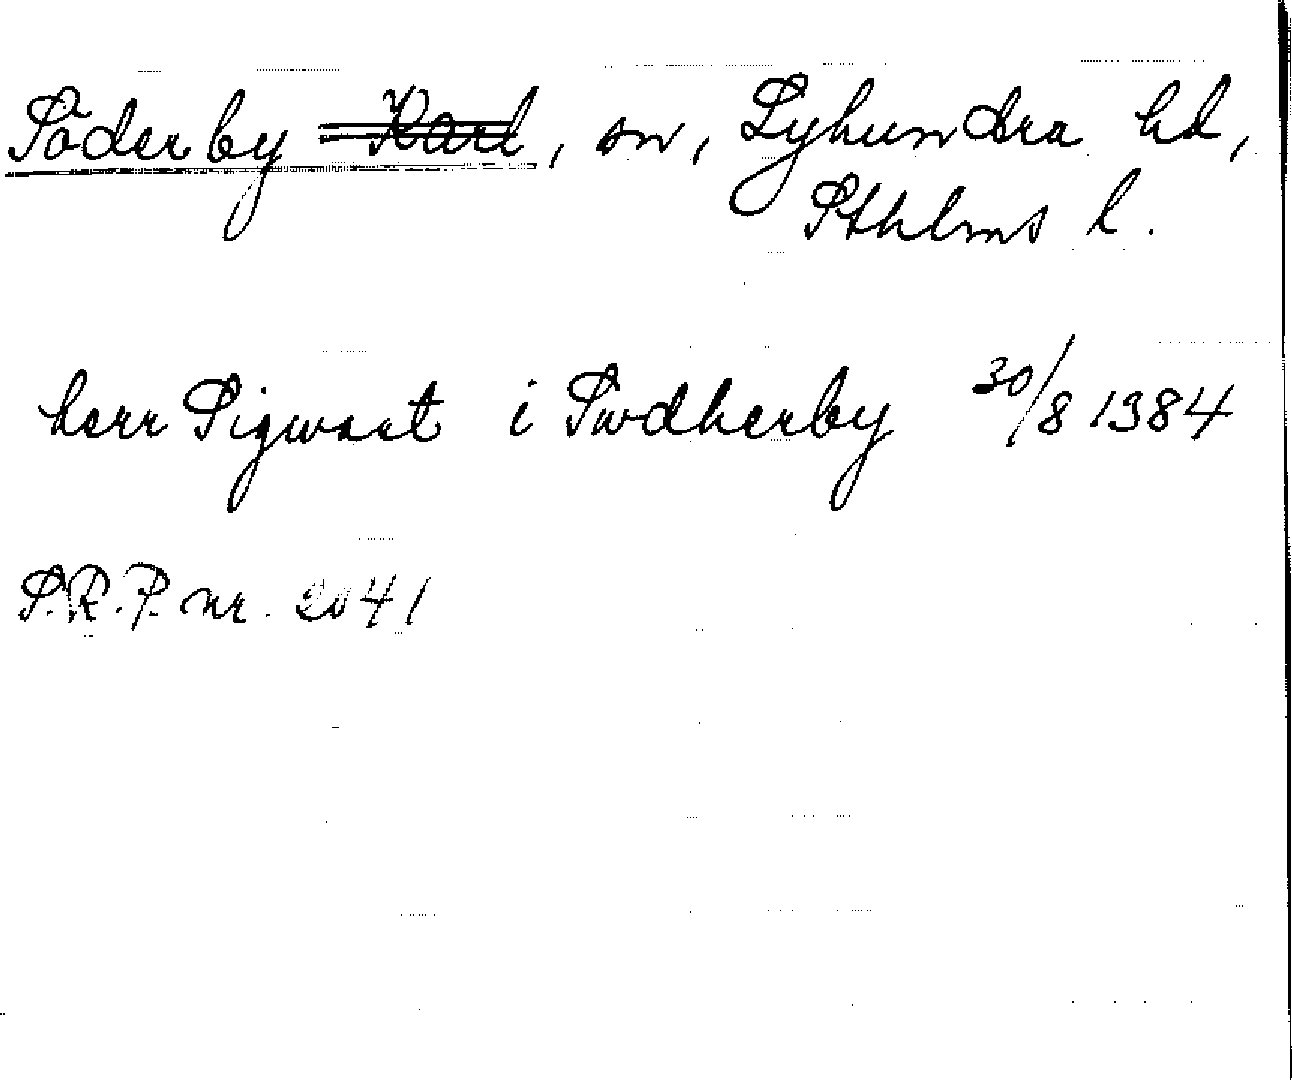 Söderby - Karl, sn, Lyhundra hd,
Sthlms l.
herr Sigwast i Swdherby 30/8 1384
S.R.P. nr. 2041